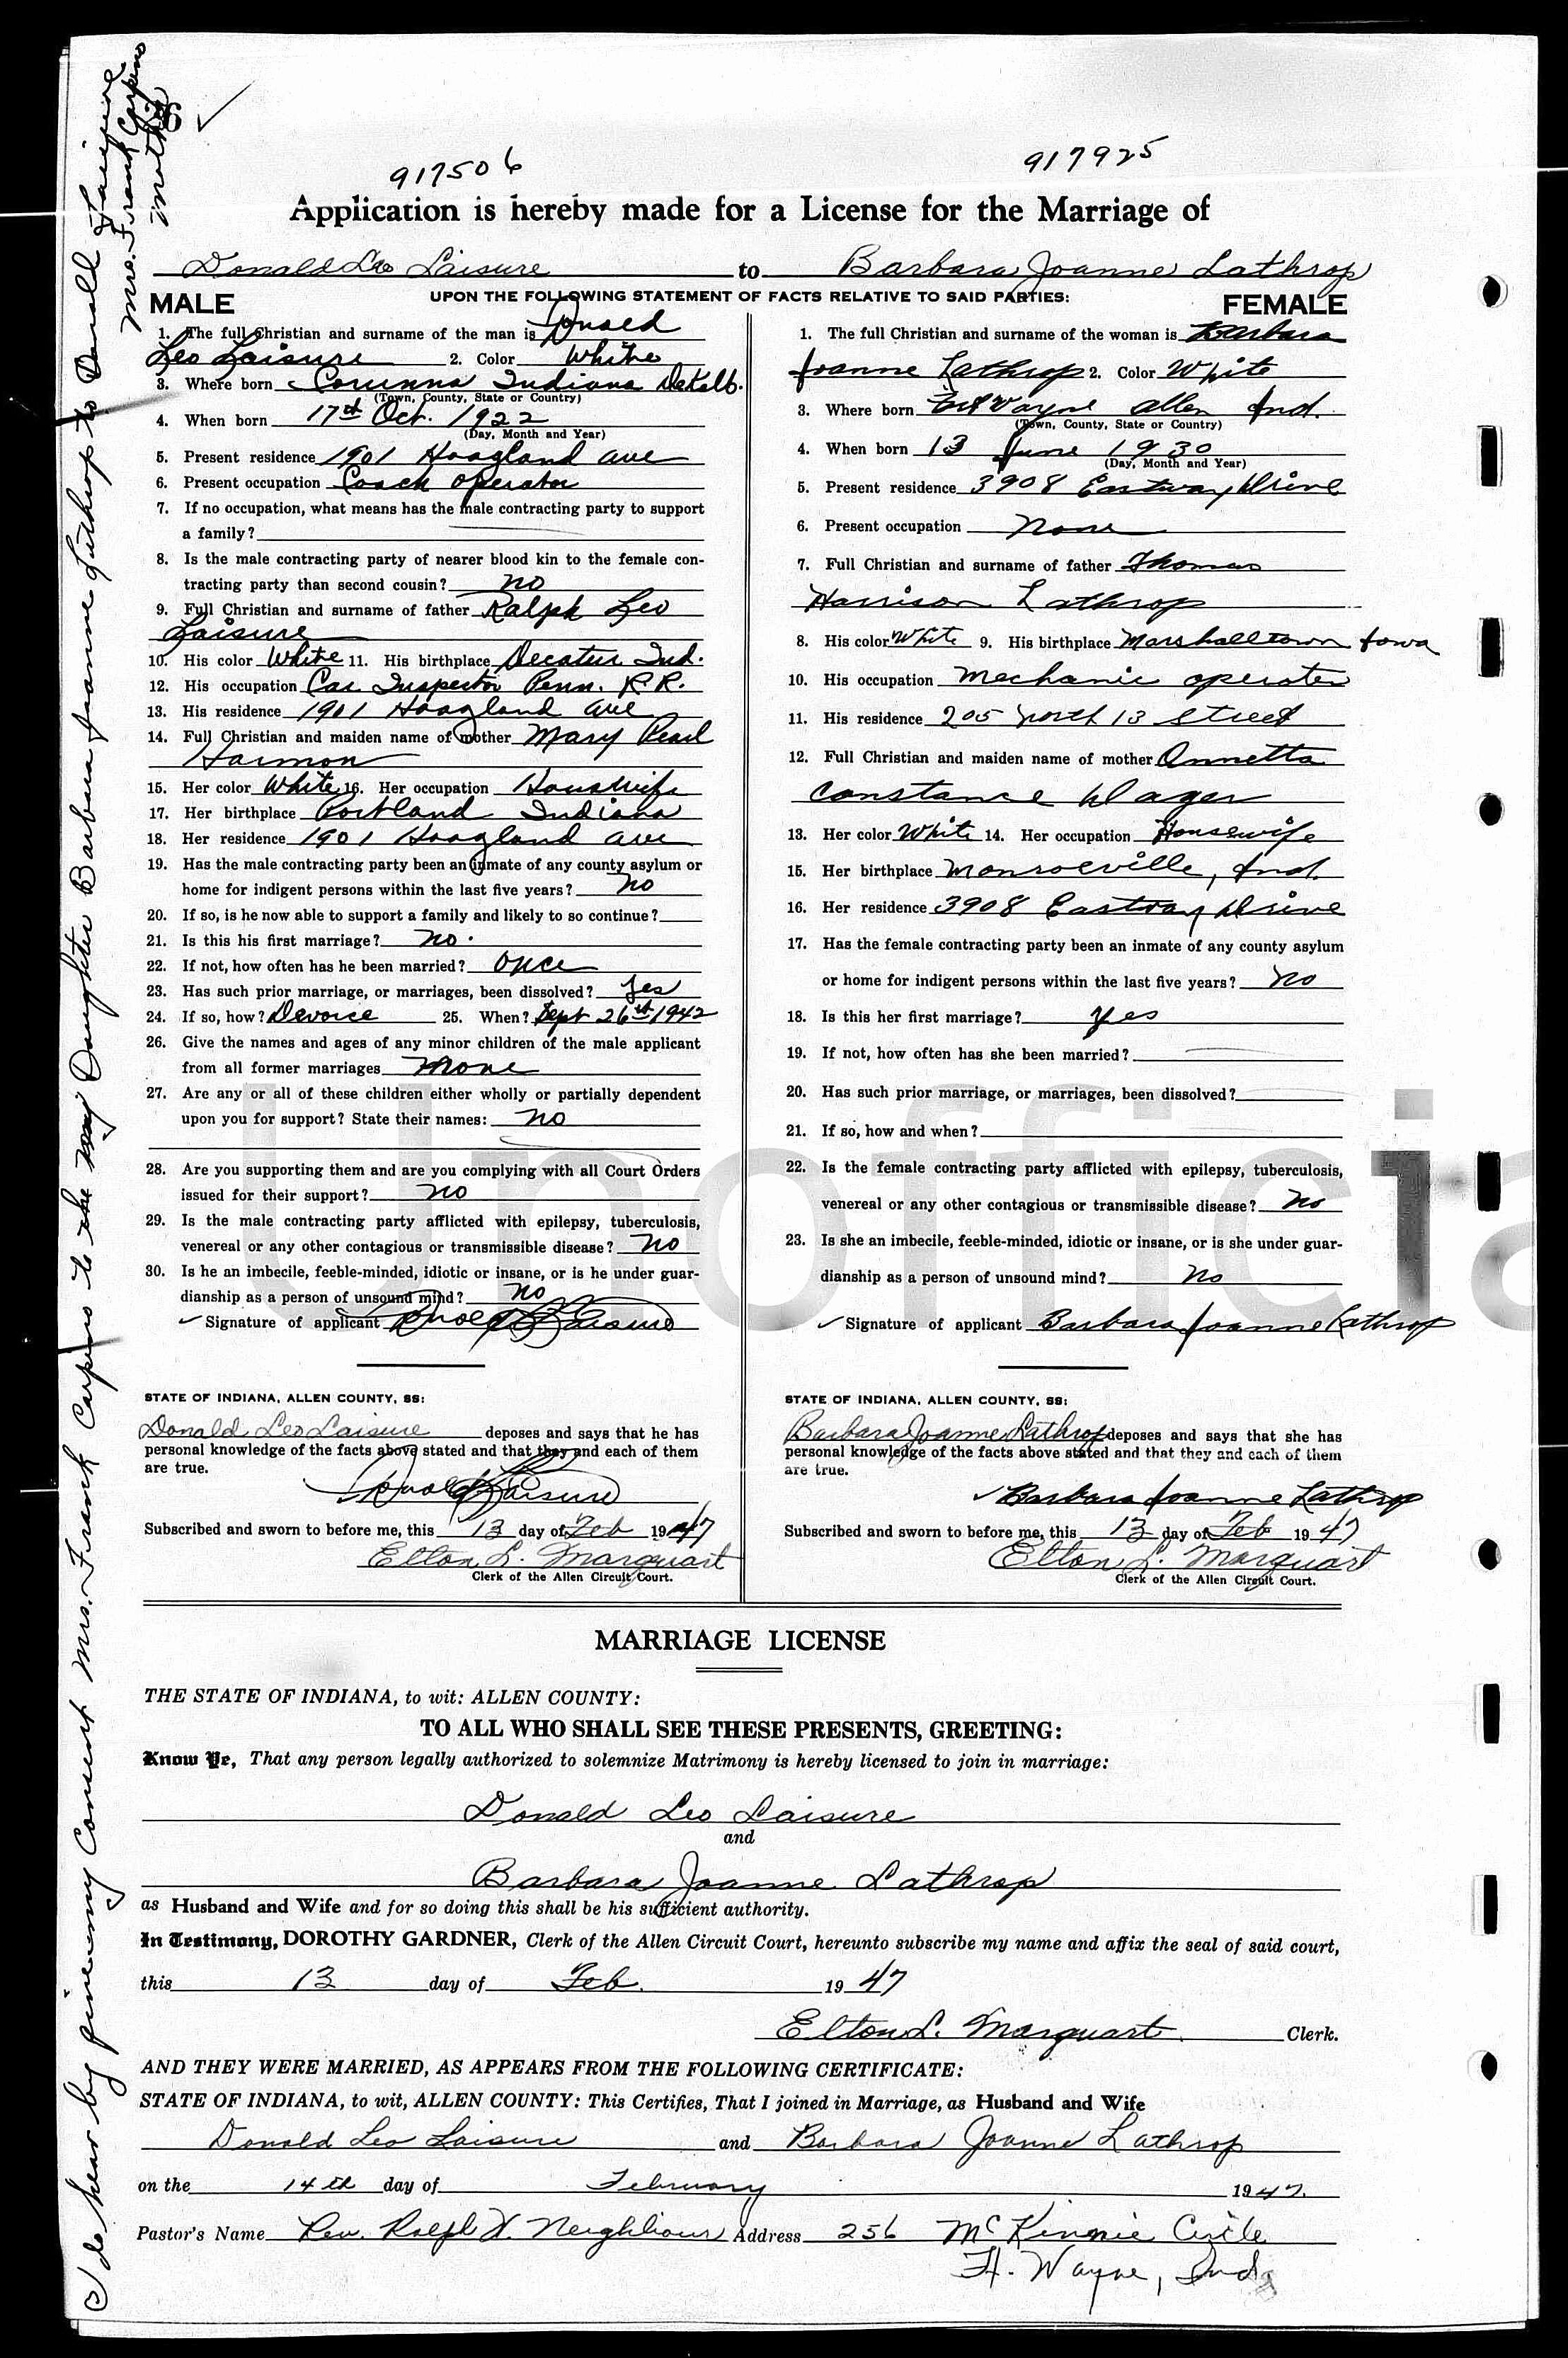 917506
917925
Application is hereby made for a License for the Marriage of
Donald Leo Laisure to Barbara Joanne Lathrop
MALE UPON THE FOLLOWING STATEMENT OF FACTS RELATIVE TO SAID PARTIES: FEMALE
1. The full Christian and surname of the man is Donald
Leo Laisure 2. Color White
3. Where born Corunna Indiana DeKalb.
(Town, County, State or Country)
4. When born 17th Oct. 1922
(Day, Month and Year)
5. Present residence 1901 Hoagland ave
6. Present occupation Coach operator
7. If no occupation, what means has the male contracting party to support
a family?
8. Is the male contracting party of nearer blood kin to the female con-
tracting party than second cousin? no
9. Full Christian and surname of father Ralph Leo
Laisure
10. His color White 11. His birthplace Decatur Ind.
12. His occupation Car Inspector Penn. R.R.
13. His residence 1901 Hoagland ave
14. Full Christian and maiden name of mother Mary Pearl
Harmon
15. Her color White 16. Her occupation Housewife
17. Her birthplace Portland Indiana
18. Her residence 1901 Hoagland ave
19. Has the male contracting party been an inmate of any county asylum or
home for indigent persons within the last five years? no
20. If so, is he now able to support a family and likely to so continue?
21. Is this his first marriage? no.
22. If not, how often has he been married? once
23. Has such prior marriage, or marriages, been dissolved? yes
24. If so, how? Devorce 25. When? Sept 26th 1942
26. Give the names and ages of any minor children of the male applicant
from all former marriages none
27. Are any or all of these children either wholly or partially dependent
upon you for support? State their names: no
28. Are you supporting them and are you complying with all Court Orders
issued for their support? no
29. Is the male contracting party afflicted with epilepsy, tuberculosis,
venereal or any other contagious or transmissible disease? no
30. Is he an imbecile, feeble-minded, idiotic or insane, or is he under guar-
dianship as a person of unsound mind? no
Signature of applicant Donald L Laisure
STATE OF INDIANA, ALLEN COUNTY, SS:
Donald Leo Laisure deposes and says that he has
personal knowledge of the facts above stated and that they and each of them
are true.
Donald L Laisure
Subscribed and sworn to before me, this 13 day of Feb 1947
Elton L. Marquart
Clerk of the Allen Circuit Court.
1. The full Christian and surname of the woman is Barbara
Joanne Lathrop 2. Color White
3. Where born Ft Wayne allen Ind.
(Town, County, State or Country)
4. When born 13 June 1930
(Day, Month and Year)
5. Present residence 3908 Eastway Drive
6. Present occupation none
7. Full Christian and surname of father Thomas
Harrison Lathrop
8. His color White 9. His birthplace Marshalltown Iowa
10. His occupation Mechanic operater
11. His residence 205 north 13 street
12. Full Christian and maiden name of mother Annetta
Constance Wager
13. Her color White 14. Her occupation Housewife
15. Her birthplace Monroeville, Ind.
16. Her residence 3908 Eastway Drive
17. Has the female contracting party been an inmate of any county asylum
or home for indigent persons within the last five years? no
18. Is this her first marriage? yes
19. If not, how often has she been married?
20. Has such prior marriage, or marriages, been dissolved?
21. If so, how and when?
22. Is the female contracting party afflicted with epilepsy, tuberculosis,
venereal or any other contagious or transmissible disease? no
23. Is she an imbecile, feeble-minded, idiotic or insane, or is she under guar-
dianship as a person of unsound mind? no
Signature of applicant Barbara Joanne Lathrop
STATE OF INDIANA, ALLEN COUNTY, SS:
Barbara Joanne Lathrop deposes and says that she has
personal knowledge of the facts above stated and that they and each of them
are true.
Barbara Joanne Lathrop
Subscribed and sworn to before me, this 13 day of Feb 1947
Elton L. Marquart
Clerk of the Allen Circuit Court.
MARRIAGE LICENSE
THE STATE OF INDIANA, to wit: ALLEN COUNTY:
TO ALL WHO SHALL SEE THESE PRESENTS, GREETING:
Know Ye, That any person legally authorized to solemnize Matrimony is hereby licensed to join in marriage:
Donald Leo Laisure
and
Barbara Joanne Lathrop
as Husband and Wife and for so doing this shall be his sufficient authority.
In Testimony, DOROTHY GARDNER, Clerk of the Allen Circuit Court, hereunto subscribe my name and affix the seal of said court,
this 13 day of Feb. 1947
Elton L. Marquart Clerk.
AND THEY WERE MARRIED, AS APPEARS FROM THE FOLLOWING CERTIFICATE:
STATE OF INDIANA, to wit, ALLEN COUNTY: This Certifies, That I joined in Marriage, as Husband and Wife
Donald Leo Laisure and Barbara Joanne Lathrop
on the 14th day of February 1947.
Pastor's Name Rev. Ralph W. Neighbour Address 256 McKinnie Circle
Ft. Wayne, Ind
I do hear by give my Consent Mrs. Frank Carpino to the my Daughter Barbara Joanne Lathrop to Donald Laisure
Mrs. Frank Carpino
Mother
Unofficia